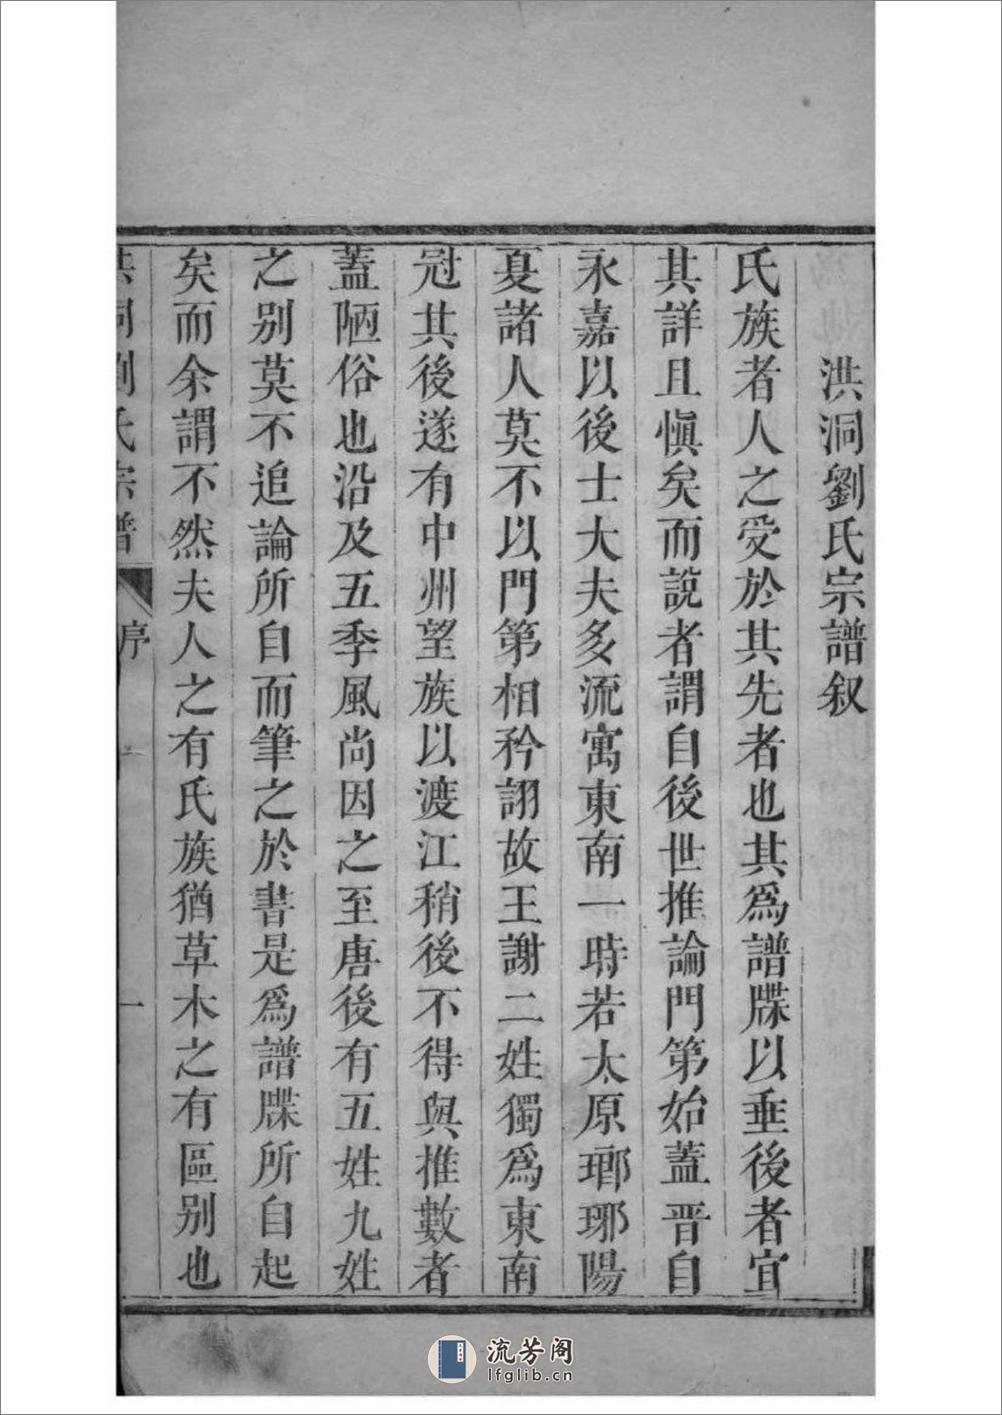 洪洞劉氏宗譜叙
氏族者人之受於其先者也其爲譜牒以垂後者宜
其詳且愼矣而說者謂自後世推論門第始蓋晋自
永嘉以後士大夫多流寓東南一時若太原瑯琊陽
夏諸人莫不以門第相矜詡故王謝二姓獨爲東南
冠其後遂有中州望族以渡江稍後不得與推數者
蓋陋俗也沿及五季風尚因之至唐後有五姓九姓
之别莫不追論所自而筆之於書是爲譜牒所自起
矣而余謂不然夫人之有氏族猶草木之有區别也
洪洞劉氏宗譜 序 一
流芳阁
lfglib.cn